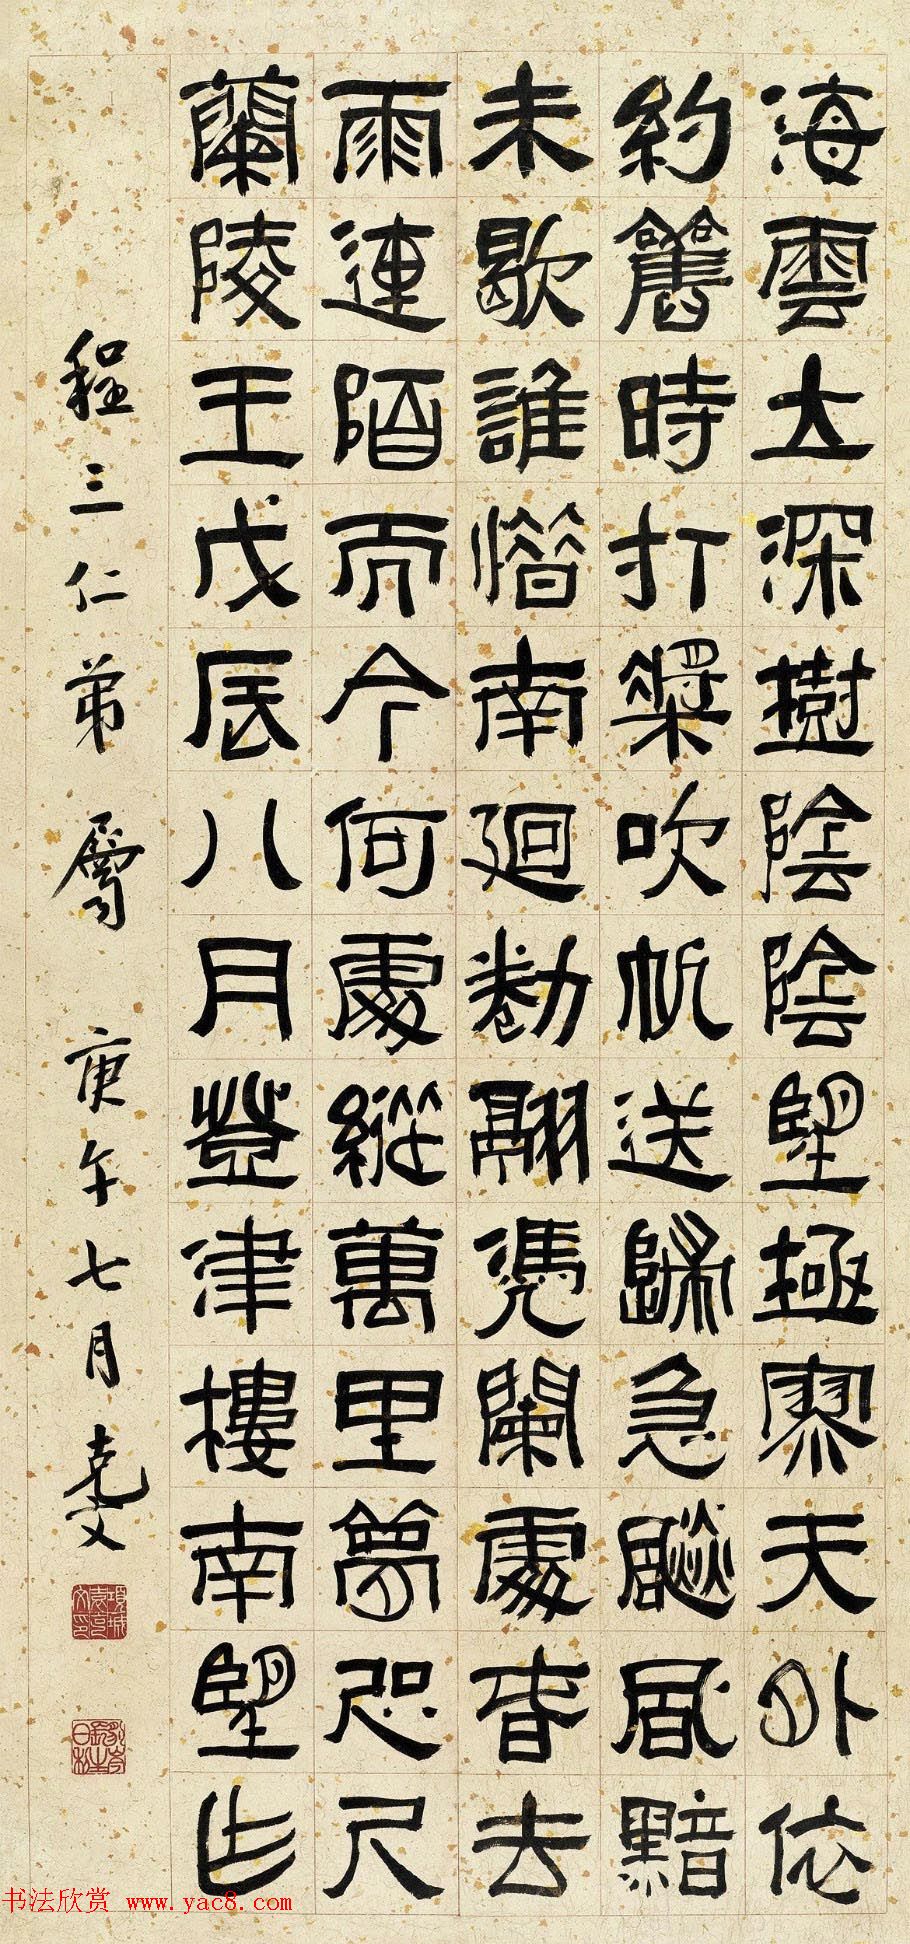 海雲立深樹陰陰望極寥天外依
約舊時打槳吹帆送歸急飈風黯
未歇誰憯南廻勌翮憑闌處春去
雨連陌而今何處縱萬里夢咫尺
蘭陵王戊辰八月登津樓南望作
程三仁弟屬 庚午七月 克文
項城袁克文印
书法欣赏 www.yac8.com